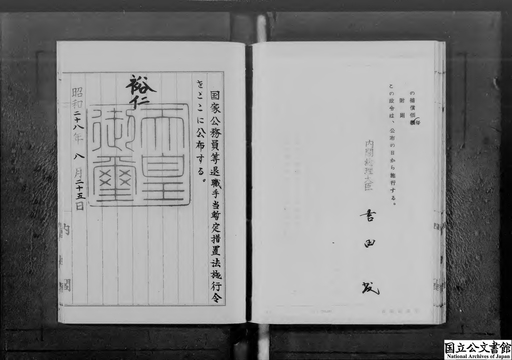 国家公務員等退職手当暫定措置法施行令
をここに公布する。
裕仁
天皇
御璽
昭和二十八年八月二十五日
内閣
この政令は、公布の日から施行する。
内閣総理大臣 吉田茂
国立公文書館
National Archives of Japan